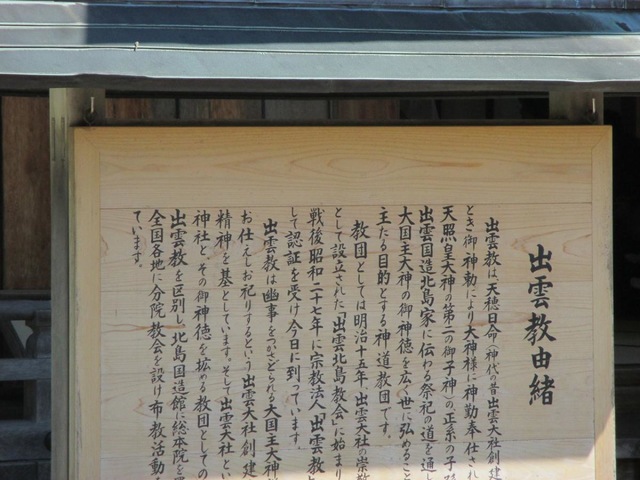 出雲教由緒
出雲教は、天穂日命(神代の昔出雲大社創建
とき御神勅により大神様に神勤奉仕され
天照皇大神の第二の御子神)の正系の子孫
出雲国造北島家に伝わる祭祀の道を通し
大国主大神の御神徳を広く世に弘めること
主たる目的とする神道教団です。
教団としては明治十五年、出雲大社の崇敬
として設立された「出雲北島教会」に始まり
戦後昭和二十七年に宗教法人「出雲教
して認証を受け今日に到っています。
出雲教は幽事をつかさどられる大国主大神
お仕えしお祀りするという出雲大社創建
精神を基としています。そして出雲大社とい
神社と、その御神徳を拡める教団としての
出雲教を区別し、北島国造館に総本院を
全国各地に分院教会を設け布教活動
ています。